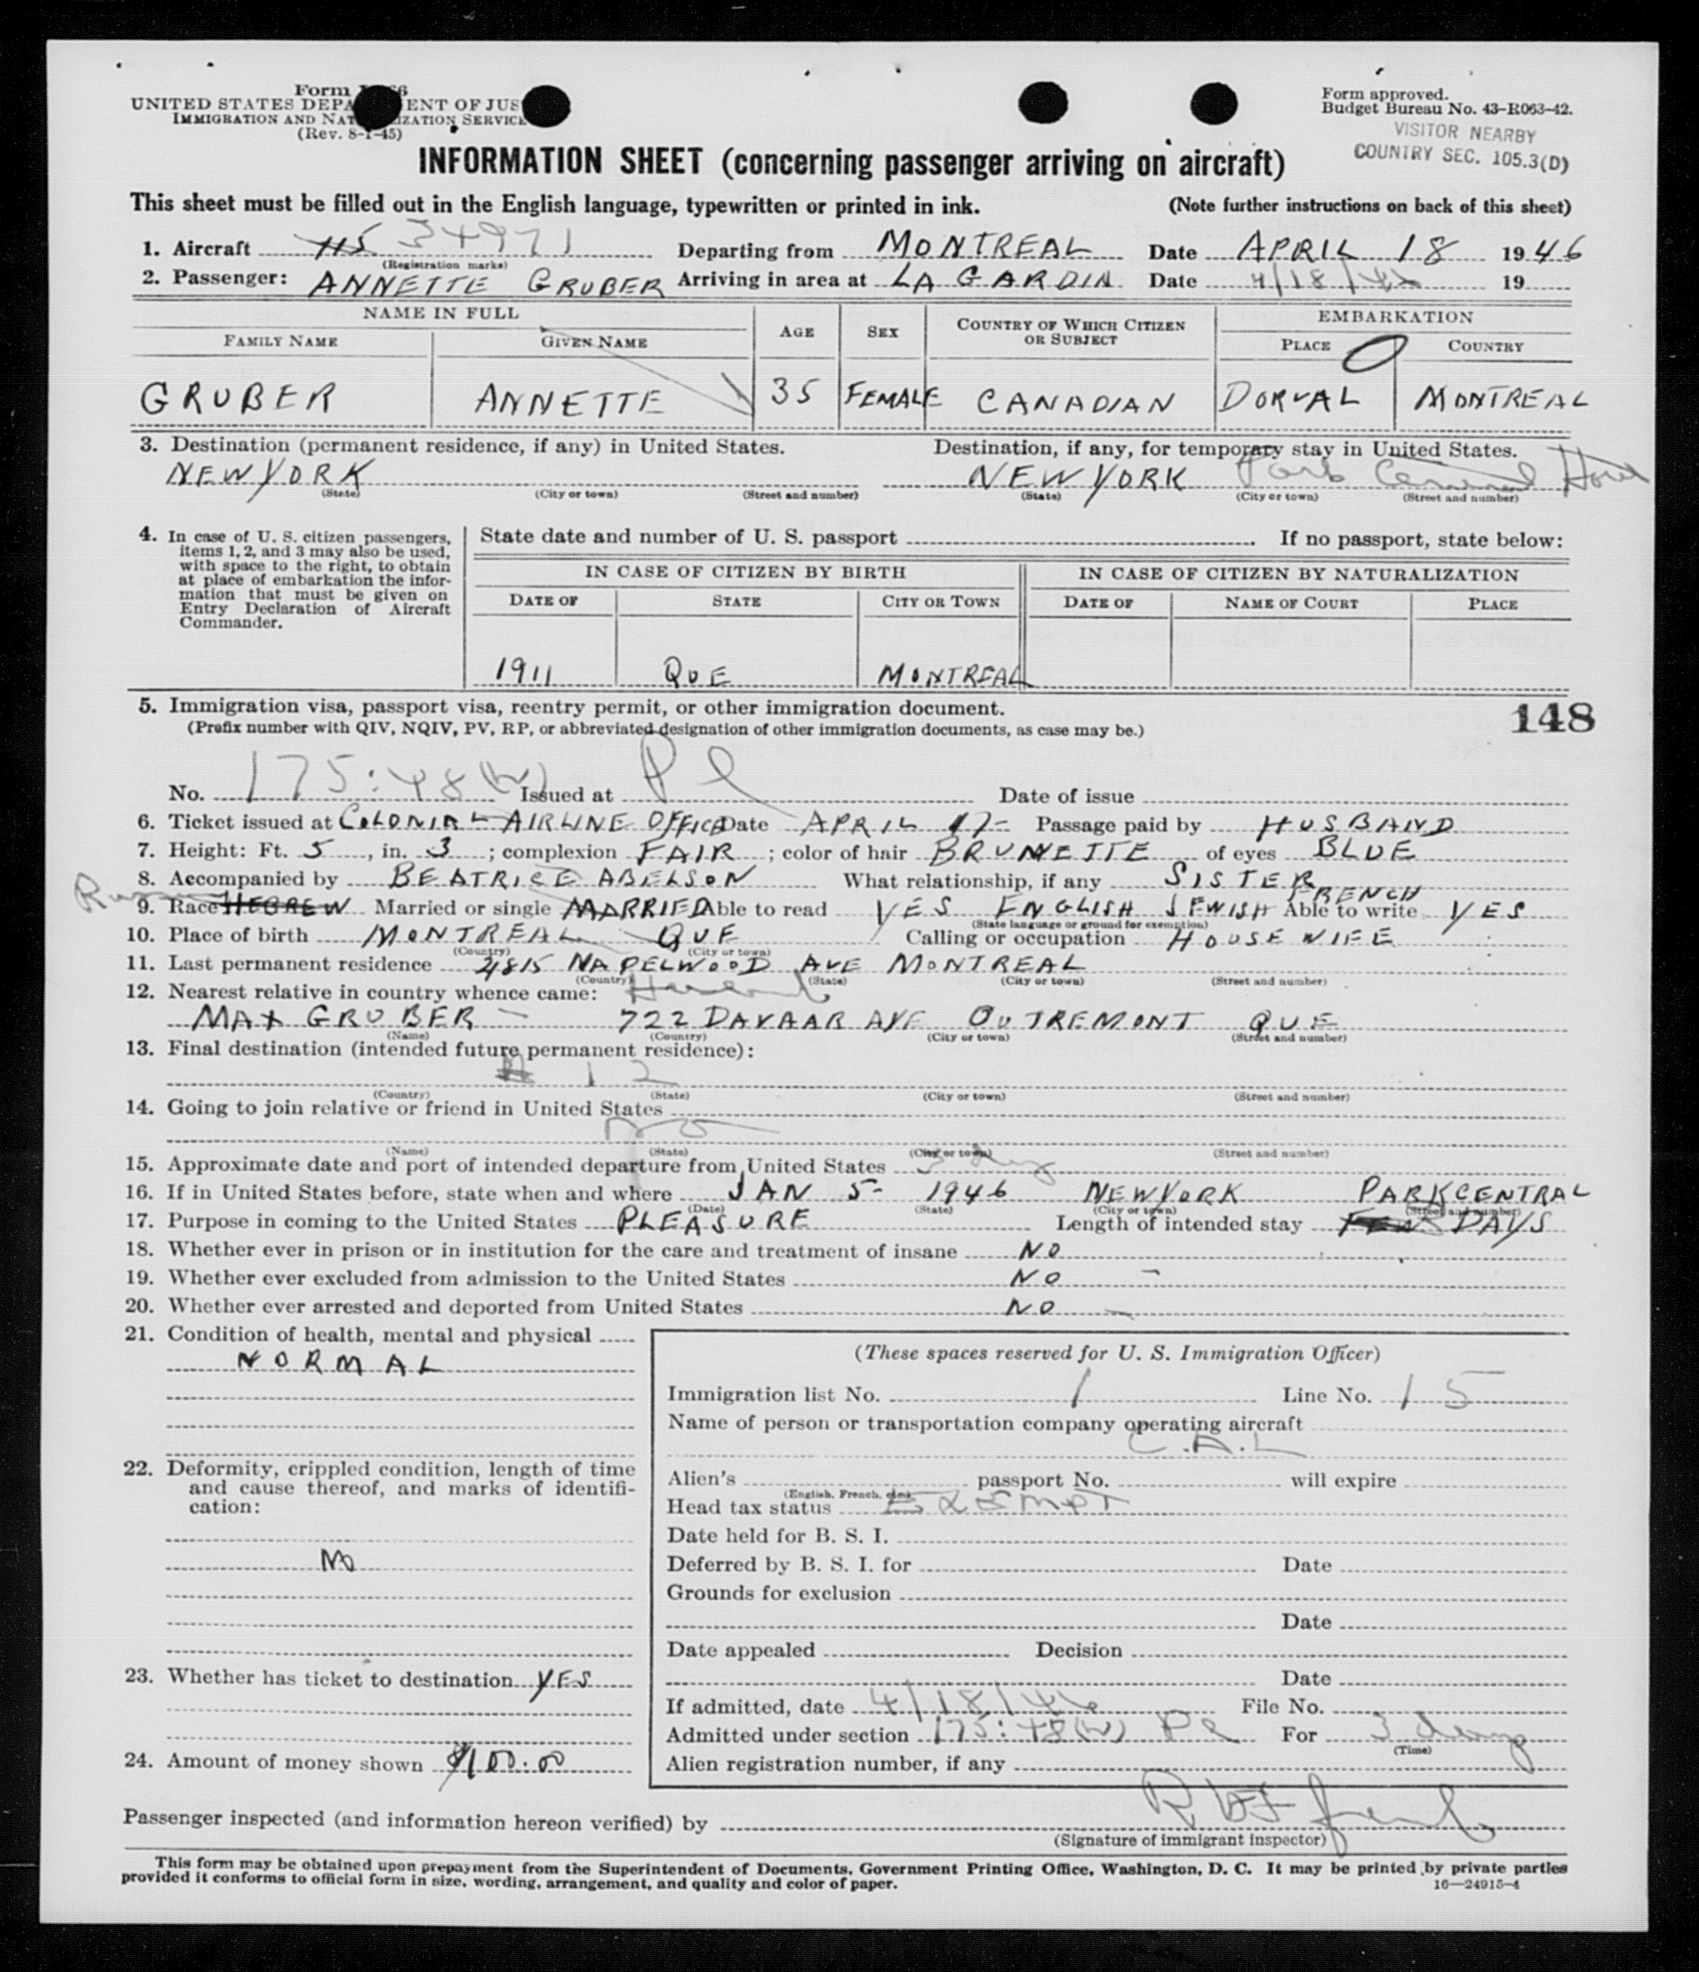 Form I-466
UNITED STATES DEPARTMENT OF JUSTICE
IMMIGRATION AND NATURALIZATION SERVICE
(Rev. 8-1-45)
Form approved.
Budget Bureau No. 43-R063-42.
VISITOR NEARBY
COUNTRY SEC. 105.3(D)
INFORMATION SHEET (concerning passenger arriving on aircraft)
This sheet must be filled out in the English language, typewritten or printed in ink. (Note further instructions on back of this sheet)
1. Aircraft 34971 Departing from MONTREAL Date APRIL 18 1946
(Registration marks)
2. Passenger: ANNETTE GRUBER Arriving in area at LA GARDIA Date 4/18/46 19
NAME IN FULL AGE SEX COUNTRY OF WHICH CITIZEN OR SUBJECT EMBARKATION
FAMILY NAME GIVEN NAME PLACE COUNTRY
GRUBER ANNETTE 35 FEMALE CANADIAN DORVAL MONTREAL
3. Destination (permanent residence, if any) in United States. Destination, if any, for temporary stay in United States.
NEW YORK NEW YORK Park Central Hotel
(State) (City or town) (Street and number) (State) (City or town) (Street and number)
4. In case of U. S. citizen passengers, items 1, 2, and 3 may also be used, with space to the right, to obtain at place of embarkation the information that must be given on Entry Declaration of Aircraft Commander.
State date and number of U. S. passport . If no passport, state below:
IN CASE OF CITIZEN BY BIRTH IN CASE OF CITIZEN BY NATURALIZATION
DATE OF STATE CITY OR TOWN DATE OF NAME OF COURT PLACE
1911 QUE MONTREAL
5. Immigration visa, passport visa, reentry permit, or other immigration document. 148
(Prefix number with QIV, NQIV, PV, RP, or abbreviated designation of other immigration documents, as case may be.)
No. 175:48(W) Issued at Pl Date of issue
6. Ticket issued at COLONIAL AIRLINE OFFICE Date APRIL 17- Passage paid by HUSBAND
7. Height: Ft. 5, in. 3; complexion FAIR; color of hair BRUNNETTE of eyes BLUE
8. Accompanied by BEATRICE ABELSON What relationship, if any SISTER
9. Race HEBREW Married or single MARRIED Able to read YES ENGLISH JEWISH FRENCH Able to write YES
(State language or ground for exemption)
10. Place of birth MONTREAL QUE Calling or occupation HOUSE WIFE
(Country) (City or town)
11. Last permanent residence 4815 NAPELWOOD AVE MONTREAL
(Country) (State) (City or town) (Street and number)
12. Nearest relative in country whence came: Husband
MAX GRUBER - 722 DAVAAR AVE OUTREMONT QUE
(Name) (Country) (City or town) (Street and number)
13. Final destination (intended future permanent residence):
# 12
(Country) (State) (City or town) (Street and number)
14. Going to join relative or friend in United States
no
(Name) (State) (City or town) (Street and number)
15. Approximate date and port of intended departure from United States 3 days
16. If in United States before, state when and where JAN 5- 1946 NEW YORK PARK CENTRAL
(Date) (State) (City or town) (Street and number)
17. Purpose in coming to the United States PLEASURE Length of intended stay FEW DAYS
18. Whether ever in prison or in institution for the care and treatment of insane NO
19. Whether ever excluded from admission to the United States NO -
20. Whether ever arrested and deported from United States NO -
21. Condition of health, mental and physical
NORMAL
22. Deformity, crippled condition, length of time and cause thereof, and marks of identification:
NO
23. Whether has ticket to destination YES
24. Amount of money shown $100.00
(These spaces reserved for U. S. Immigration Officer)
Immigration list No. 1 Line No. 15
Name of person or transportation company operating aircraft
C.A.L
Alien's passport No. will expire
(English, French, etc.)
Head tax status EXEMPT
Date held for B. S. I.
Deferred by B. S. I. for Date
Grounds for exclusion
Date
Date appealed Decision
Date
If admitted, date 4/18/46 File No.
Admitted under section 175:48(W) Pl For 3 days
(Time)
Alien registration number, if any
Passenger inspected (and information hereon verified) by
(Signature of immigrant inspector)
This form may be obtained upon prepayment from the Superintendent of Documents, Government Printing Office, Washington, D. C. It may be printed by private parties
provided it conforms to official form in size, wording, arrangement, and quality and color of paper. 16—24915-4